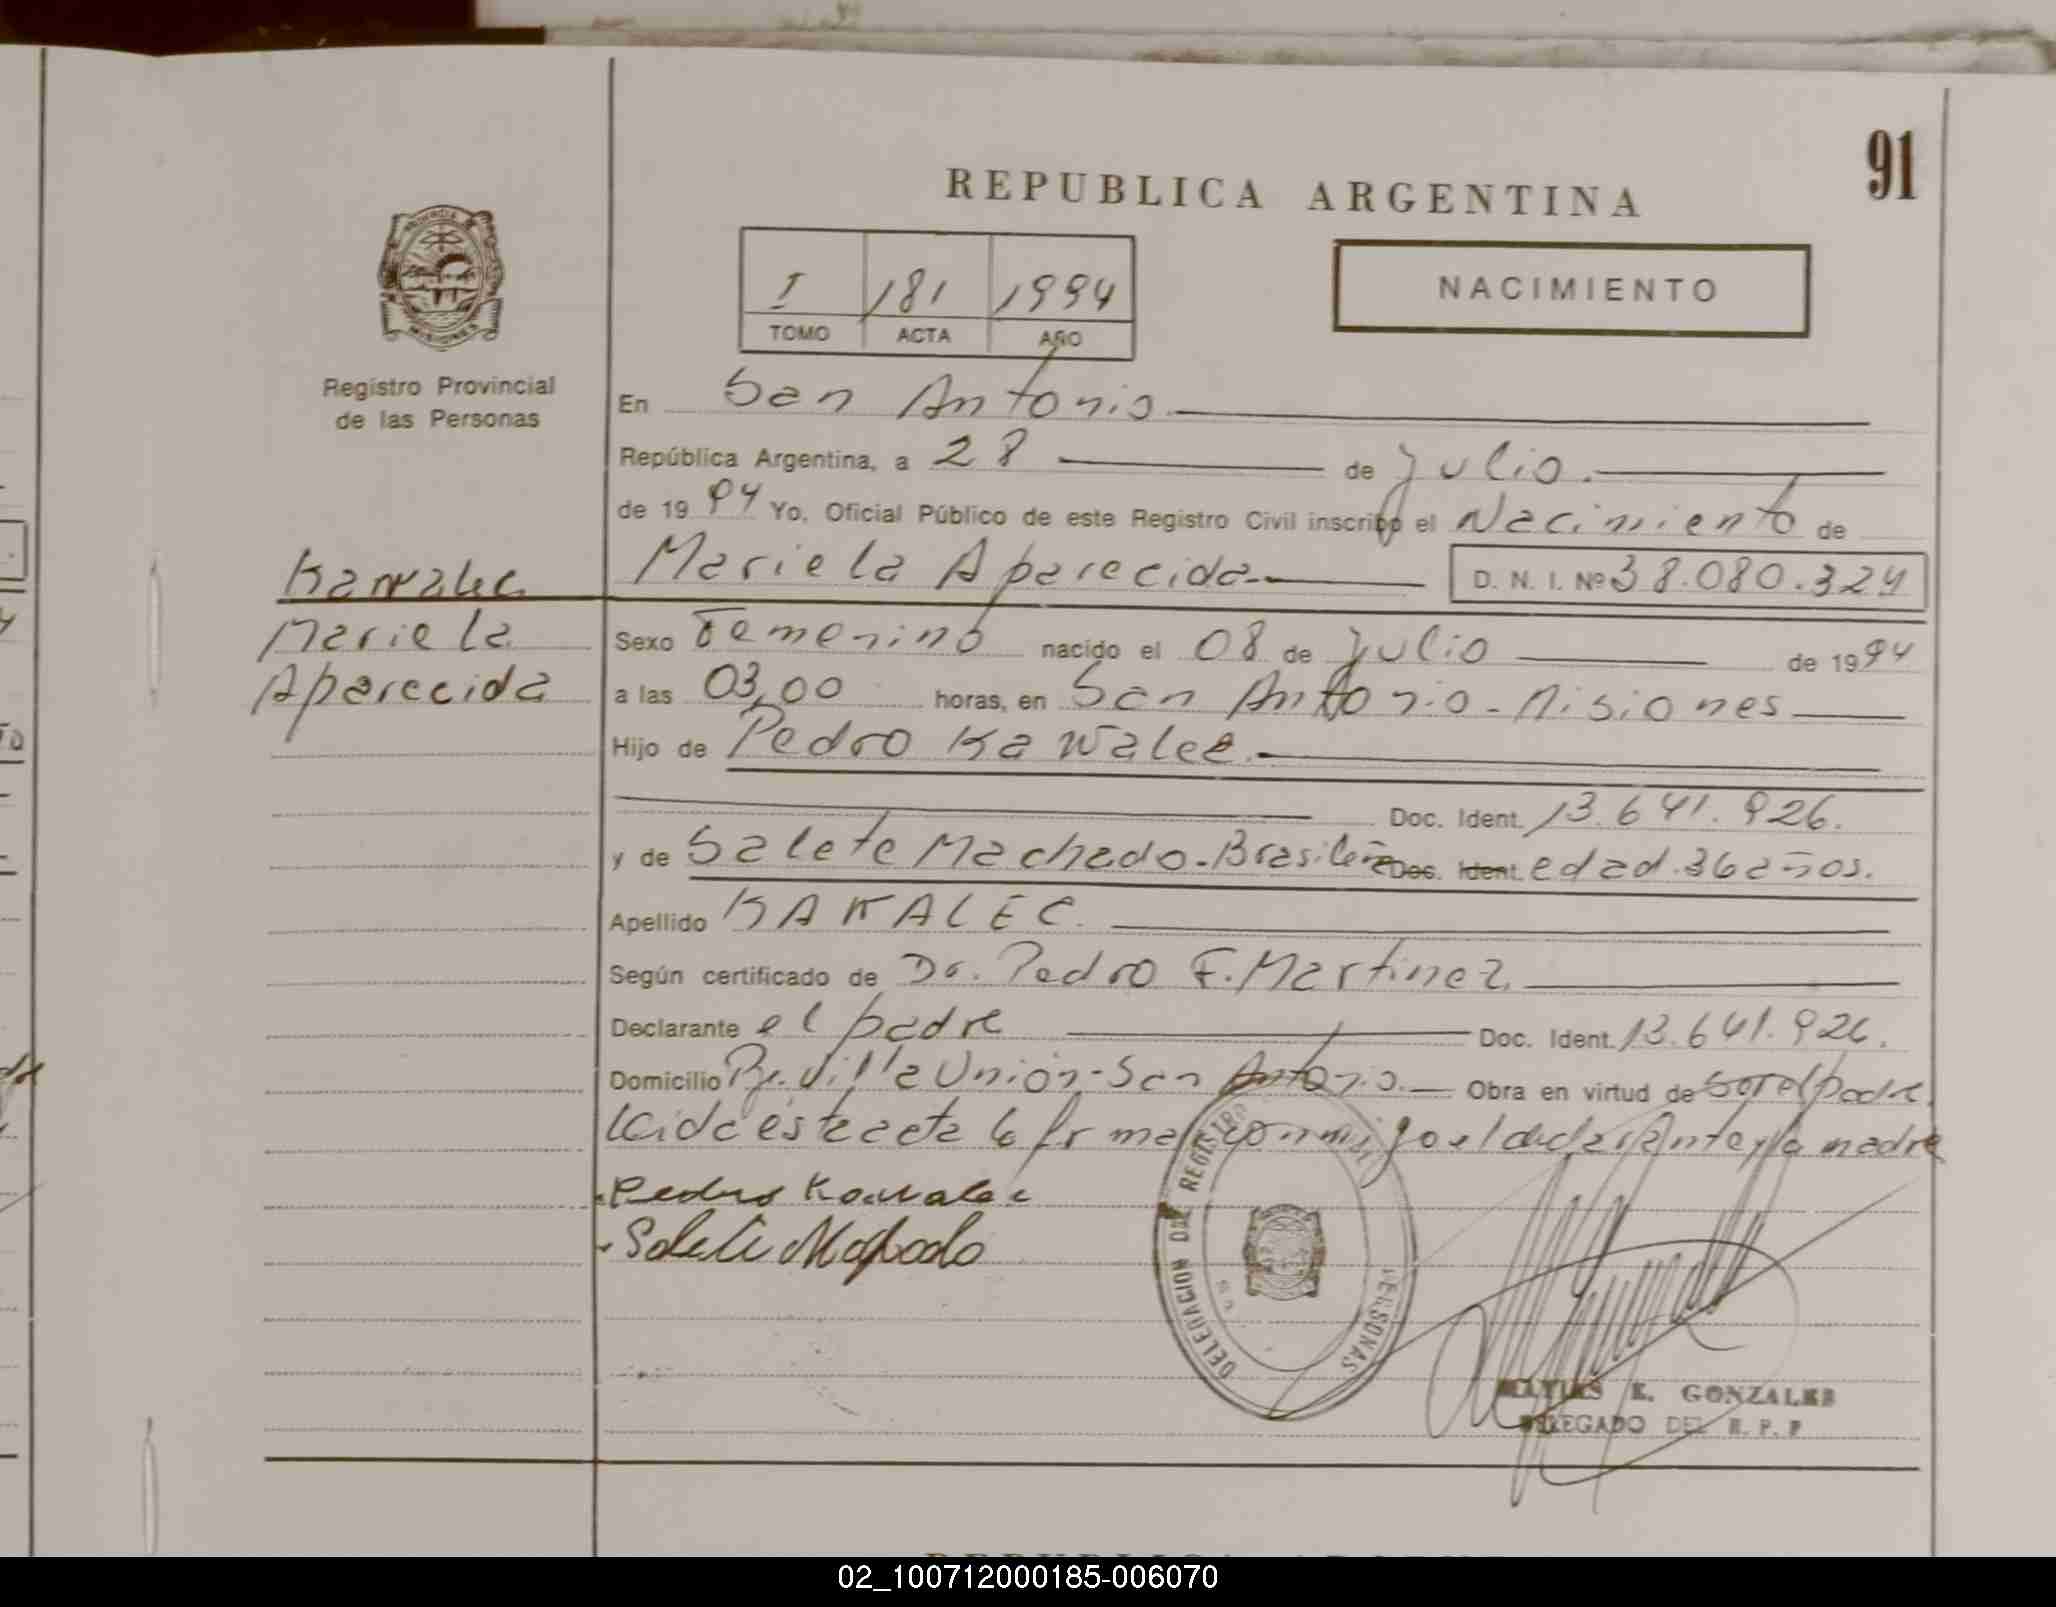 91
REPUBLICA ARGENTINA
NACIMIENTO
I 181 1994
TOMO ACTA AÑO
Registro Provincial
de las Personas
En San Antonio
República Argentina, a 28 de Julio.
de 1994 Yo, Oficial Público de este Registro Civil inscribo el Nacimiento de
Mariela Aparecida D. N. I. Nº 38.080.324
Kawalec
Mariela
Aparecida
Sexo Femenino nacido el 08 de Julio de 1994
a las 03,00 horas, en San Antonio - Misiones
Hijo de Pedro Kawalec.
Doc. Ident. 13.641.926.
y de Salete Machado - Brasileña Doc. Ident. edad 36 años.
Apellido KAWALEC.
Según certificado de Dr. Pedro F. Martinez
Declarante el padre Doc. Ident. 13.641.926.
Domicilio Villa Unión - San Antonio. Obra en virtud de ser el padre.
Leida esta acta la firman conmigo el declarante y la madre
Pedro Kawalec
Salete Machado
DELEGACION DEL REGISTRO PERSONAS
E. GONZALES
DELEGADO DEL R. P. P
02_100712000185-006070